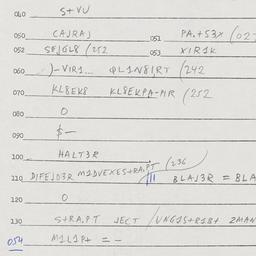 040 S+VU
050 CAJRAJ 051 PA.+S3X (02
052 SEJGL8 (252 053 XIR1K
060 )-VIR1... QL1N8IRT (242
070 KL8EK8 KL8EKPA-MR (252
080 O
090 $-
100 HALT3R
(236
110 DIFEJD3R M1DVEKES+RA,PT 111 BLAJ3R = BLA
120 O
130 S+RA,PT JECT /UNG1S+R18+ 2MAN
054 M1L1P+ = -